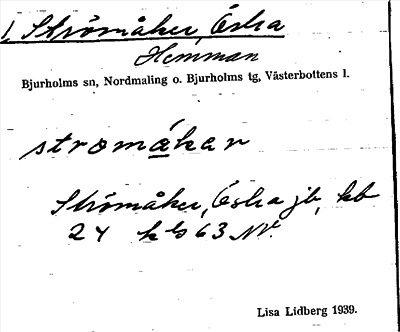 1, Strömåker, Östra
Hemman
Bjurholms sn, Nordmaling o. Bjurholms tg, Västerbottens l.
stromákar
Strömåker, Östra jb, kb
24 k bs 63 NV.
Lisa Lidberg 1939.